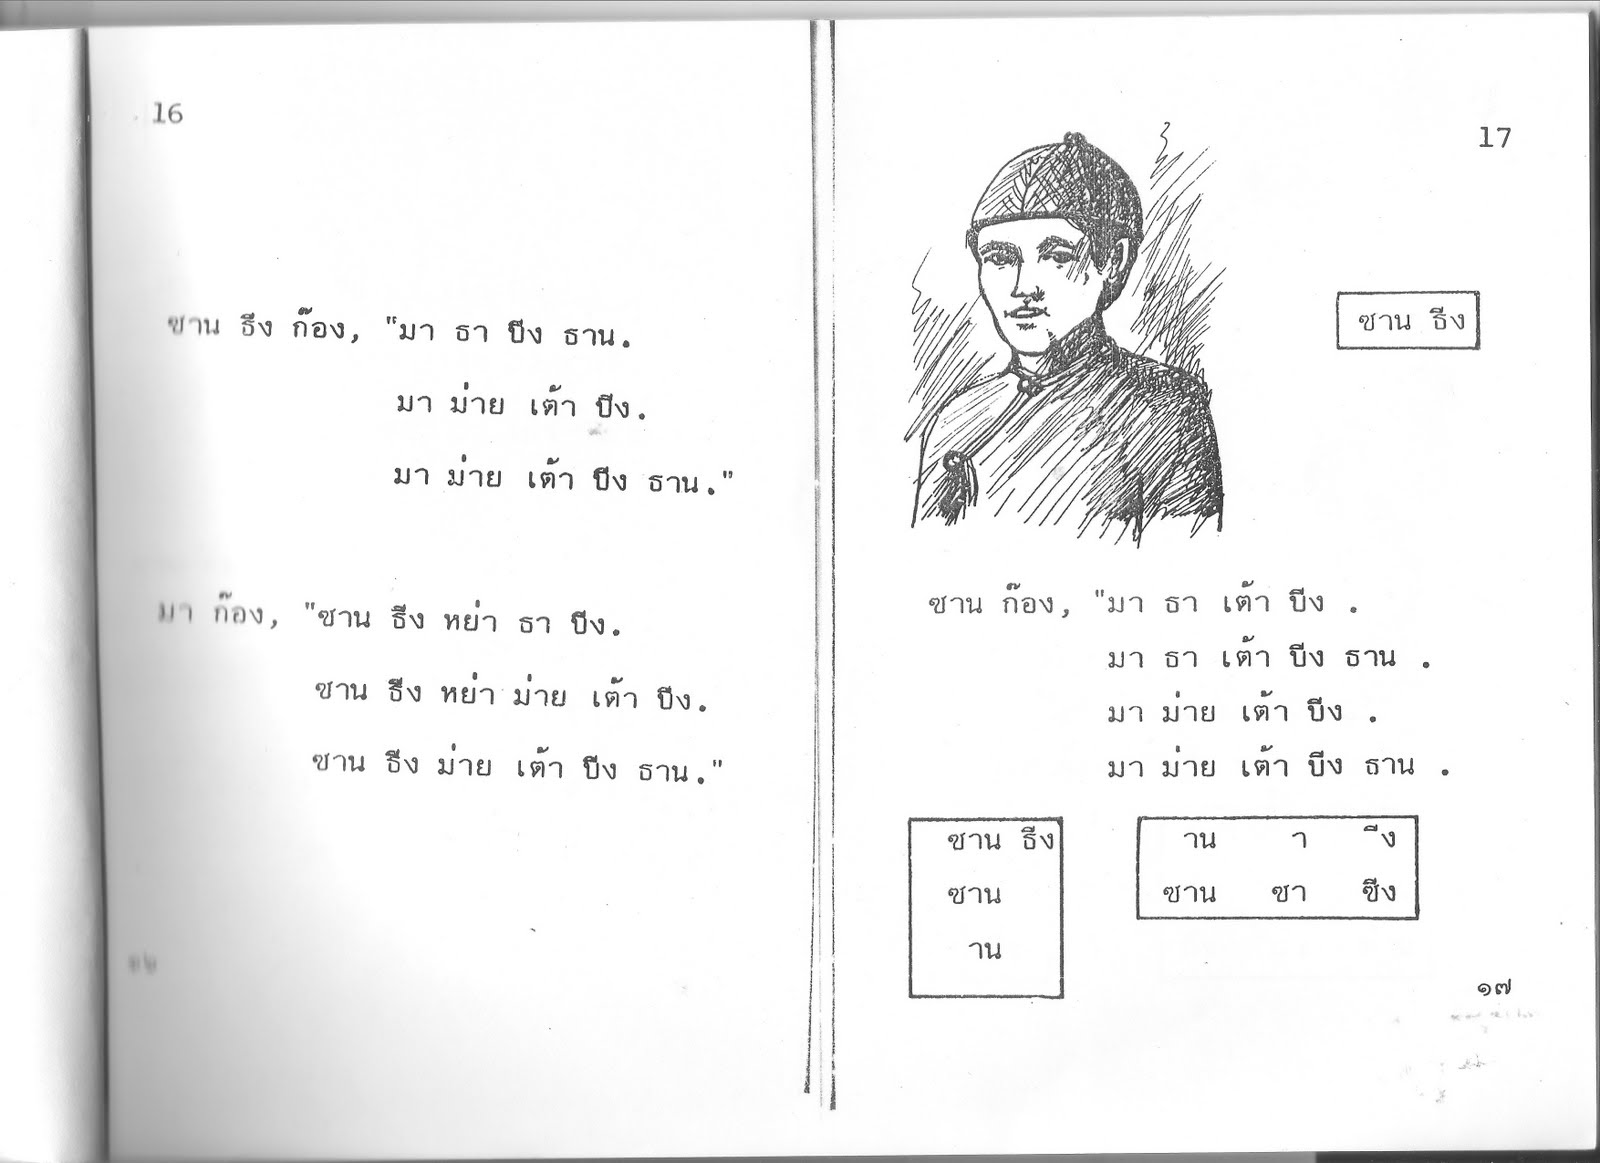 16
ซาน ธีง ก๊อง, "มา ธา ปีง ธาน.
มา ม่าย เต้า ปีง.
มา ม่าย เต้า ปีง ธาน."
มา ก๊อง, "ซาน ธีง หย่า ธา ปีง.
ซาน ธีง หย่า ม่าย เต้า ปีง.
ซาน ธีง ม่าย เต้า ปีง ธาน."
๑๖
17
ซาน ธีง
ซาน ก๊อง, "มา ธา เต้า ปีง .
มา ธา เต้า ปีง ธาน .
มา ม่าย เต้า ปีง .
มา ม่าย เต้า ปีง ธาน .
ซาน ธีง
ซาน
าน
าน า ีง
ซาน ซา ซีง
๑๗